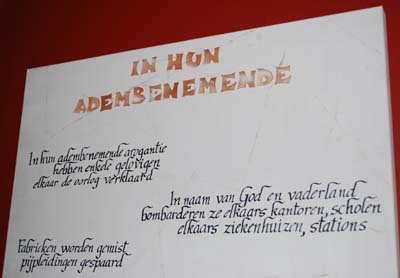 IN HUN
ADEMBENEMENDE
In hun adembenemende arogantie
hebben enkele gelovigen
elkaar de oorlog verklaard
In naam van God en vaderland
bombarderen ze elkaars kantoren, scholen
elkaars ziekenhuizen, stations
Fabrieken worden gemist
pijpleidingen gespaard